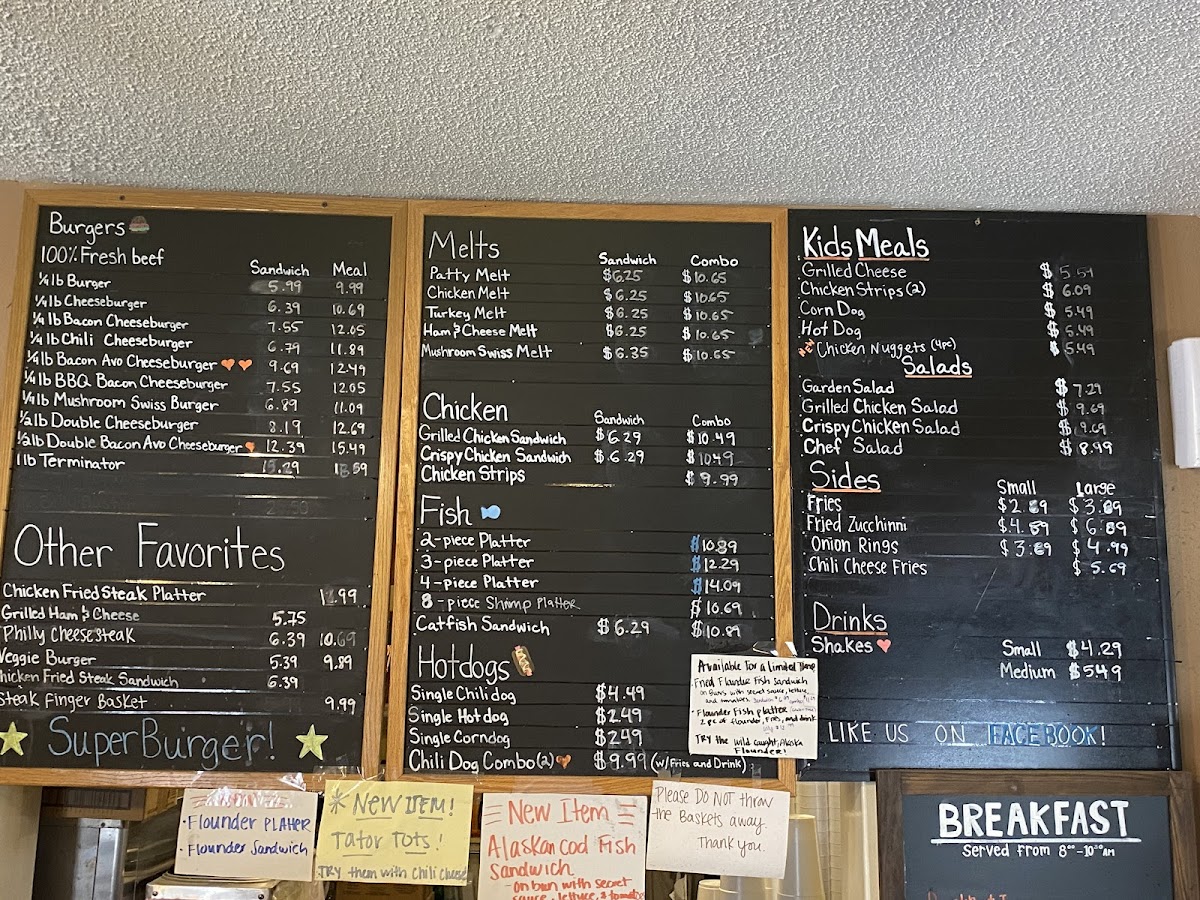 Burgers
100% Fresh beef
Sandwich Meal
1/4 lb Burger 5.99 9.99
1/4 lb Cheeseburger 6.39 10.69
1/4 lb Bacon Cheeseburger 7.55 12.05
1/4 lb Chili Cheeseburger 6.79 11.89
1/4 lb Bacon Avo Cheeseburger 9.69 12.49
1/4 lb BBQ Bacon Cheeseburger 7.55 12.05
1/4 lb Mushroom Swiss Burger 6.89 11.09
1/2 lb Double Cheeseburger 8.19 12.69
1/2 lb Double Bacon Avo Cheeseburger 12.39 15.49
1 lb Terminator
Other Favorites
Chicken Fried Steak Platter
Grilled Ham & Cheese 5.75
Philly Cheesesteak 6.39 10.69
Veggie Burger 5.39 9.89
Chicken Fried Steak Sandwich 6.39
Steak Finger Basket 9.99
SuperBurger!
Melts
Sandwich Combo
Patty Melt $6.25 $10.65
Chicken Melt $6.25 $10.65
Turkey Melt $6.25 $10.65
Ham & Cheese Melt $6.25 $10.65
Mushroom Swiss Melt $6.35 $10.65
Chicken
Sandwich Combo
Grilled Chicken Sandwich $6.29 $10.49
Crispy Chicken Sandwich $6.29 $1049
Chicken Strips $9.99
Fish
2-piece Platter $10.89
3-piece Platter $12.29
4-piece Platter $14.09
8-piece Shrimp Platter $10.69
Catfish Sandwich $6.29 $10.89
Hotdogs
Single Chili dog $4.49
Single Hot dog $2.49
Single Corndog $2.49
Chili Dog Combo (2) $9.99 (w/Fries and Drink)
Kids Meals
Grilled Cheese
Chicken Strips (2) $6.09
Corn Dog $5.49
Hot Dog $5.49
NEW Chicken Nuggets (4pc) $5.49
Salads
Garden Salad $7.29
Grilled Chicken Salad $9.69
Crispy Chicken Salad $9.69
Chef Salad $8.99
Sides
Small Large
Fries $2.89 $3.89
Fried Zucchinni $4.59 $6.89
Onion Rings $3.89 $4.99
Chili Cheese Fries $5.69
Drinks
Shakes Small $4.29
Medium $5.49
LIKE US ON FACEBOOK!
Available for a limited Time
Fried Flounder Fish Sandwich
on Buns with secret sauce, lettuce,
and tomatoes
• Flounder Fish platter
2 pc of flounder, Fries, and drink
TRY the wild caught, Alaska
Flounder!
• Flounder PLATTER
• Flounder Sandwich
* NEW ITEM!
Tator Tots!
TRY them with Chili Cheese
New Item
Alaskan Cod Fish
Sandwich
- on bun with secret
sauce, lettuce, & tomato
Please DO NOT throw
the Baskets away.
Thank you.
BREAKFAST
Served from 8⁰⁰-10³⁰AM